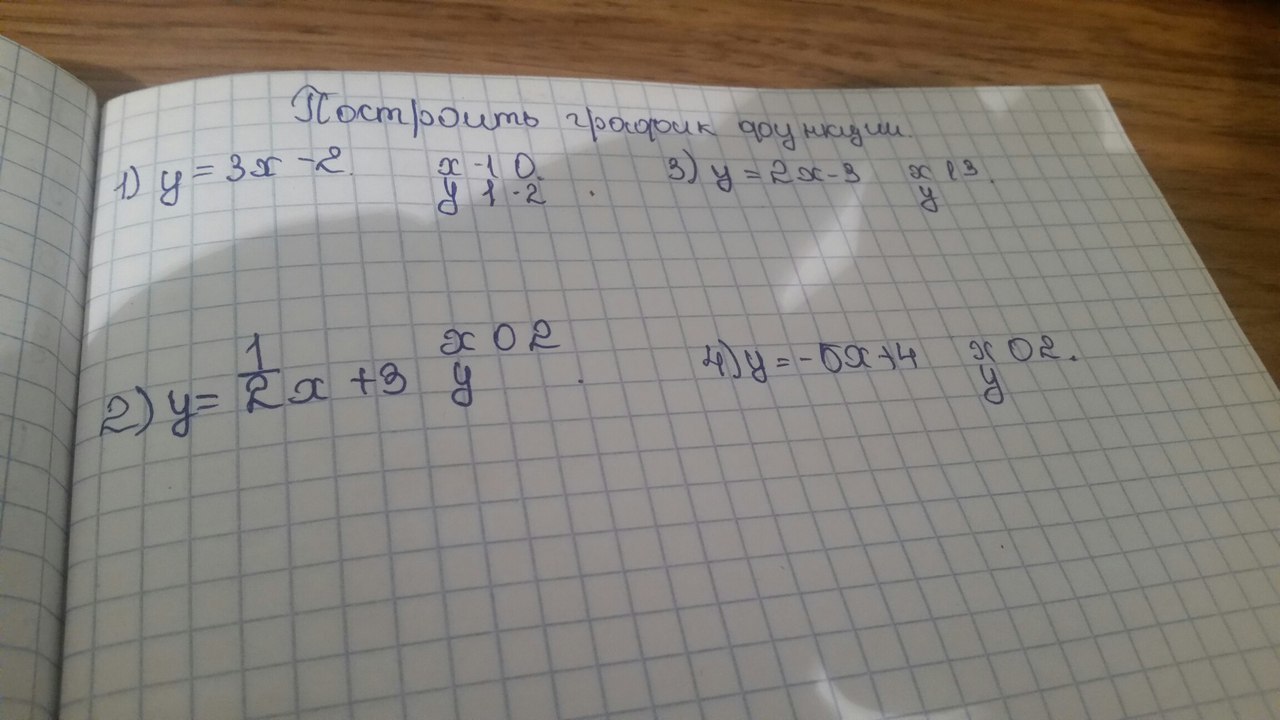 Построить график функции.
1) y = 3x - 2. x -1 0.
y 1 -2 .
3) y = 2x - 3 x 3.
y
2) y = 1/2 x + 3 x 0 2
y .
4) y = - x + 4 x 0 2.
y